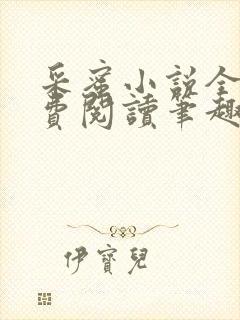 采蜜小說全
費閱讀筆趣
伊寶兒